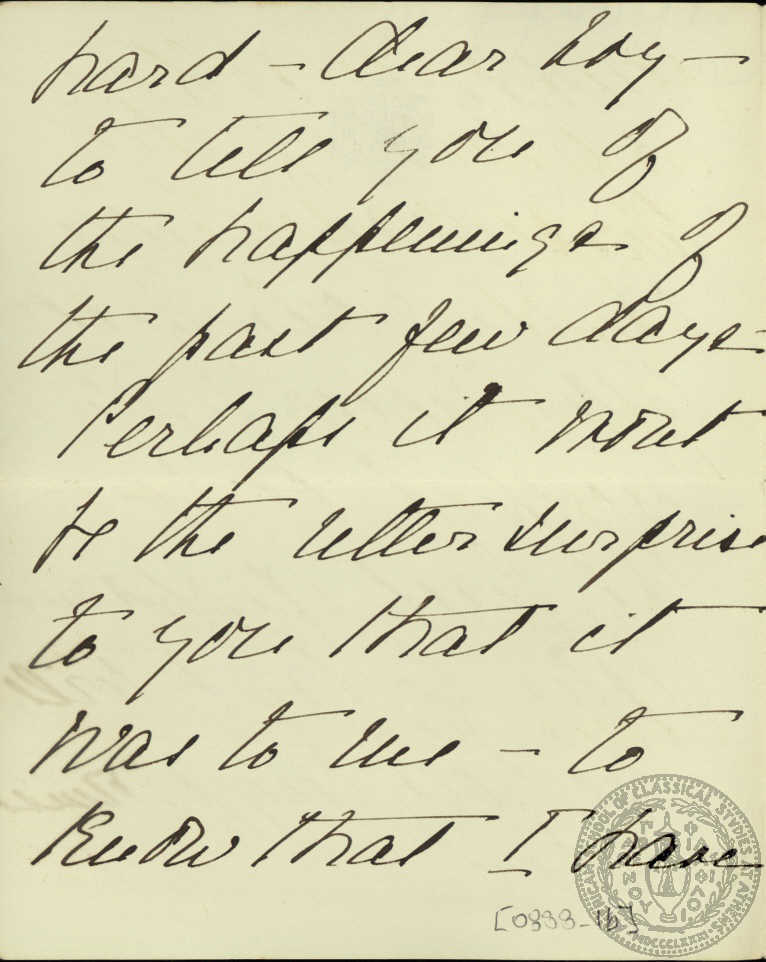 hard – dear boy –
to tell you of
the happenings of
the past few days –
Perhaps it wont
be the utter surprise
to you that it
was to me – to
know that I have
[0333-1b]
SCHOOL OF CLASSICAL STUDIES AT ATHENS
MDCCCLXXXI